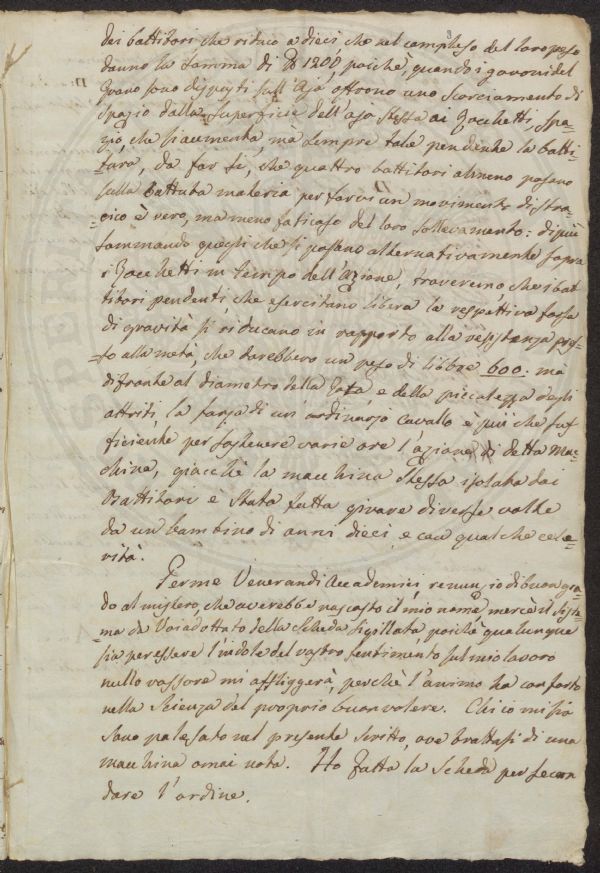 dei battitori che riduco a dieci, che nel complesso del loro peso
danno la somma di ℔ 1200, poichè, quando i govoni del
Grano sono disposti sull'Aja offrono uno scorciamento di
spazio dalla superficie dell'aja stessa ai Zocchetti, spa-
zio, che si aumenta, ma sempre tale pendente la batti-
tura, da far sì, che quattro battitori almeno posano
sulla battuta materia per farvi un movimento di stra-
cico è vero, ma meno faticoso del loro sollevamento: di più
sommando quegli che si posano alternativamente sopra
i Zocchetti in tempo dell'Azione, troveremo che i bat-
titori pendenti, che esercitano libera la respettiva forza
di gravità si riducano in rapporto alla resistenza pres-
to alla metà, che darebbero un peso di libbre 600: ma
difronte al diametro della Rota, e della piccolezza degli
attriti, la forza di un' ordinario Cavallo è più che suf-
ficiente per sostenere varie ore l'azione di detta Ma-
china, giacchè la macchina stessa isolata dai
Battitori è stata fatta girare diverse volte
da un bambino di anni dieci, e con qualche cele-
rità.
Per me Venerandi Accademici, renunzio di buon gra-
do al mistero, che averebbe nascosto il mio nome mercè il Siste-
ma da Voi adottato della Scheda sigillata, poichè qualunque
sia per essere l'indole del vostro sentimento sul mio lavoro
nullo rossore mi affliggerà, perchè l'animo ha conforto
nella Scienza del proprio buon volere. Chi io mi sia
sono palesato nel presente scritto, ove trattasi di una
macchina omai nota. Ho fatta la Scheda per secon-
dare l'ordine.